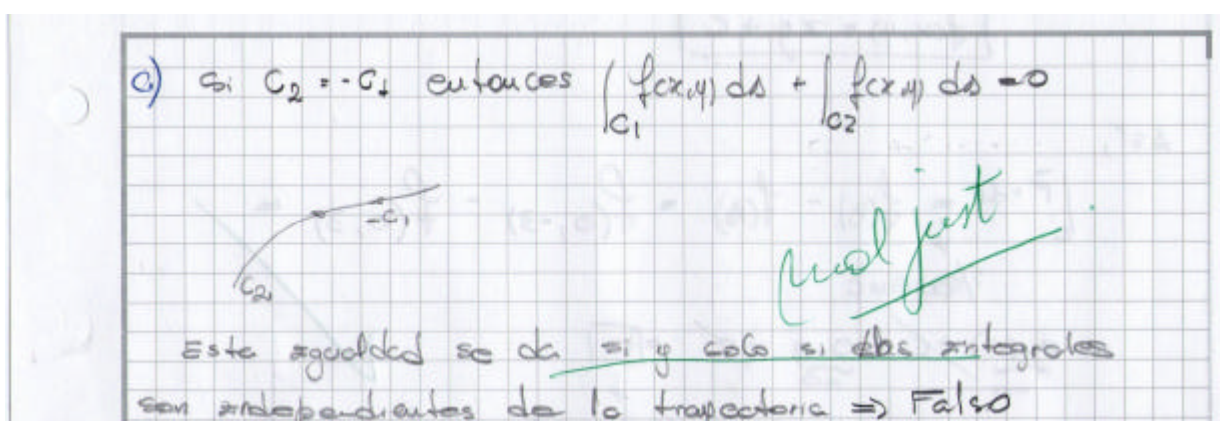 c) Si C₂ = -C₁ entonces ∫_C₁ f(x,y) ds + ∫_C₂ f(x,y) ds = 0
-C₁
mal just.
C₂
Esta igualdad se da si y solo si las integrales
son independientes de la trayectoria => Falso